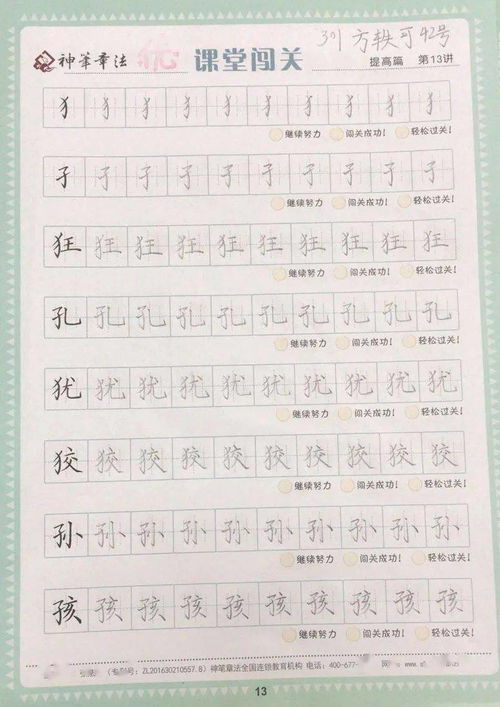 301 方轶可 42号
神笔章法 优 课堂闯关 提高篇 第13讲
犭 犭 犭 犭 犭 犭 犭 犭 犭 犭
继续努力 闯关成功! 轻松过关!
孑 孑 孑 孑 孑 孑 孑 孑 孑 孑
继续努力 闯关成功! 轻松过关!
狂 狂 狂 狂 狂 狂 狂 狂 狂 狂
继续努力 闯关成功! 轻松过关!
孔 孔 孔 孔 孔 孔 孔 孔 孔 孔
继续努力 闯关成功! 轻松过关!
犹 犹 犹 犹 犹 犹 犹 犹 犹 犹
继续努力 闯关成功! 轻松过关!
狡 狡 狡 狡 狡 狡 狡 狡 狡 狡
继续努力 闯关成功! 轻松过关!
孙 孙 孙 孙 孙 孙 孙 孙 孙 孙
继续努力 闯关成功! 轻松过关!
孩 孩 孩 孩 孩 孩 孩 孩 孩 孩
继续努力 闯关成功! 轻松过关!
(专利号: ZL201630210557.8) 神笔章法全国连锁教育机构 电话: 400-677-
13